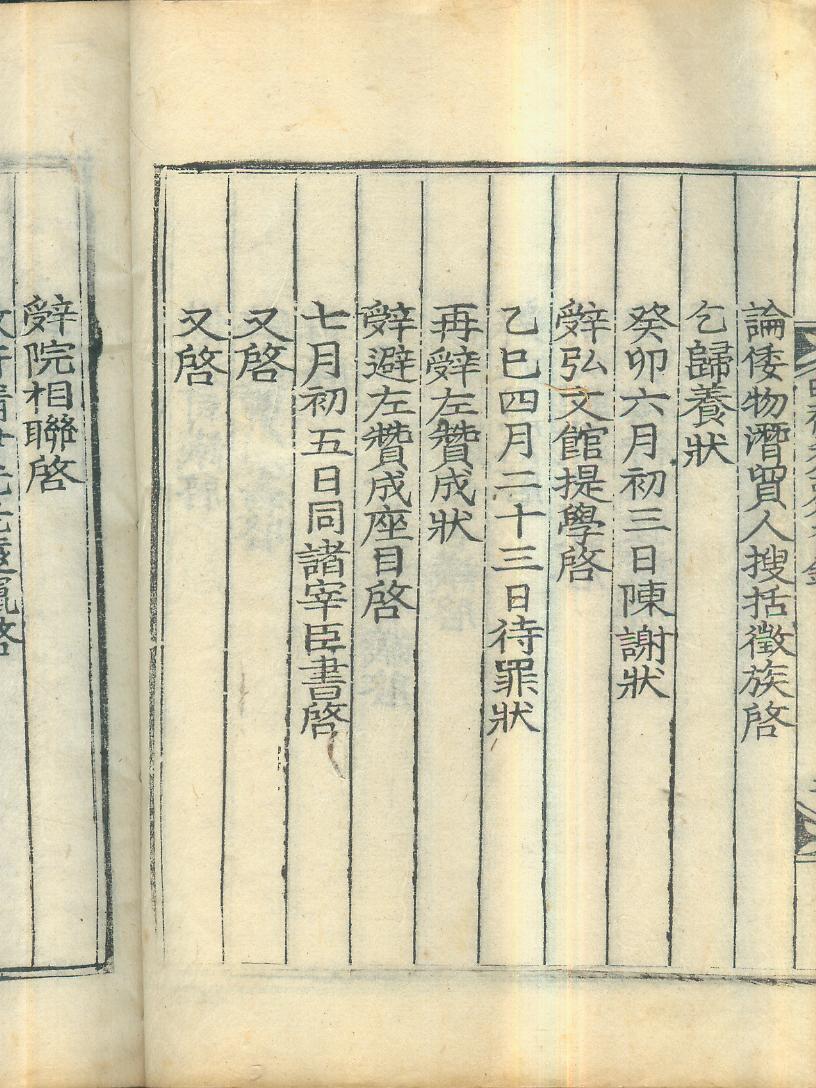 論倭物潛買人搜括徵族啓
乞歸養狀
癸卯六月初三日陳謝狀
辤弘文館提學啓
乙巳四月二十三日待罪狀
再辤左贊成狀
辤避左贊成座目啓
七月初五日同諸宰臣書啓
又啓
又啓
辤院相聯啓